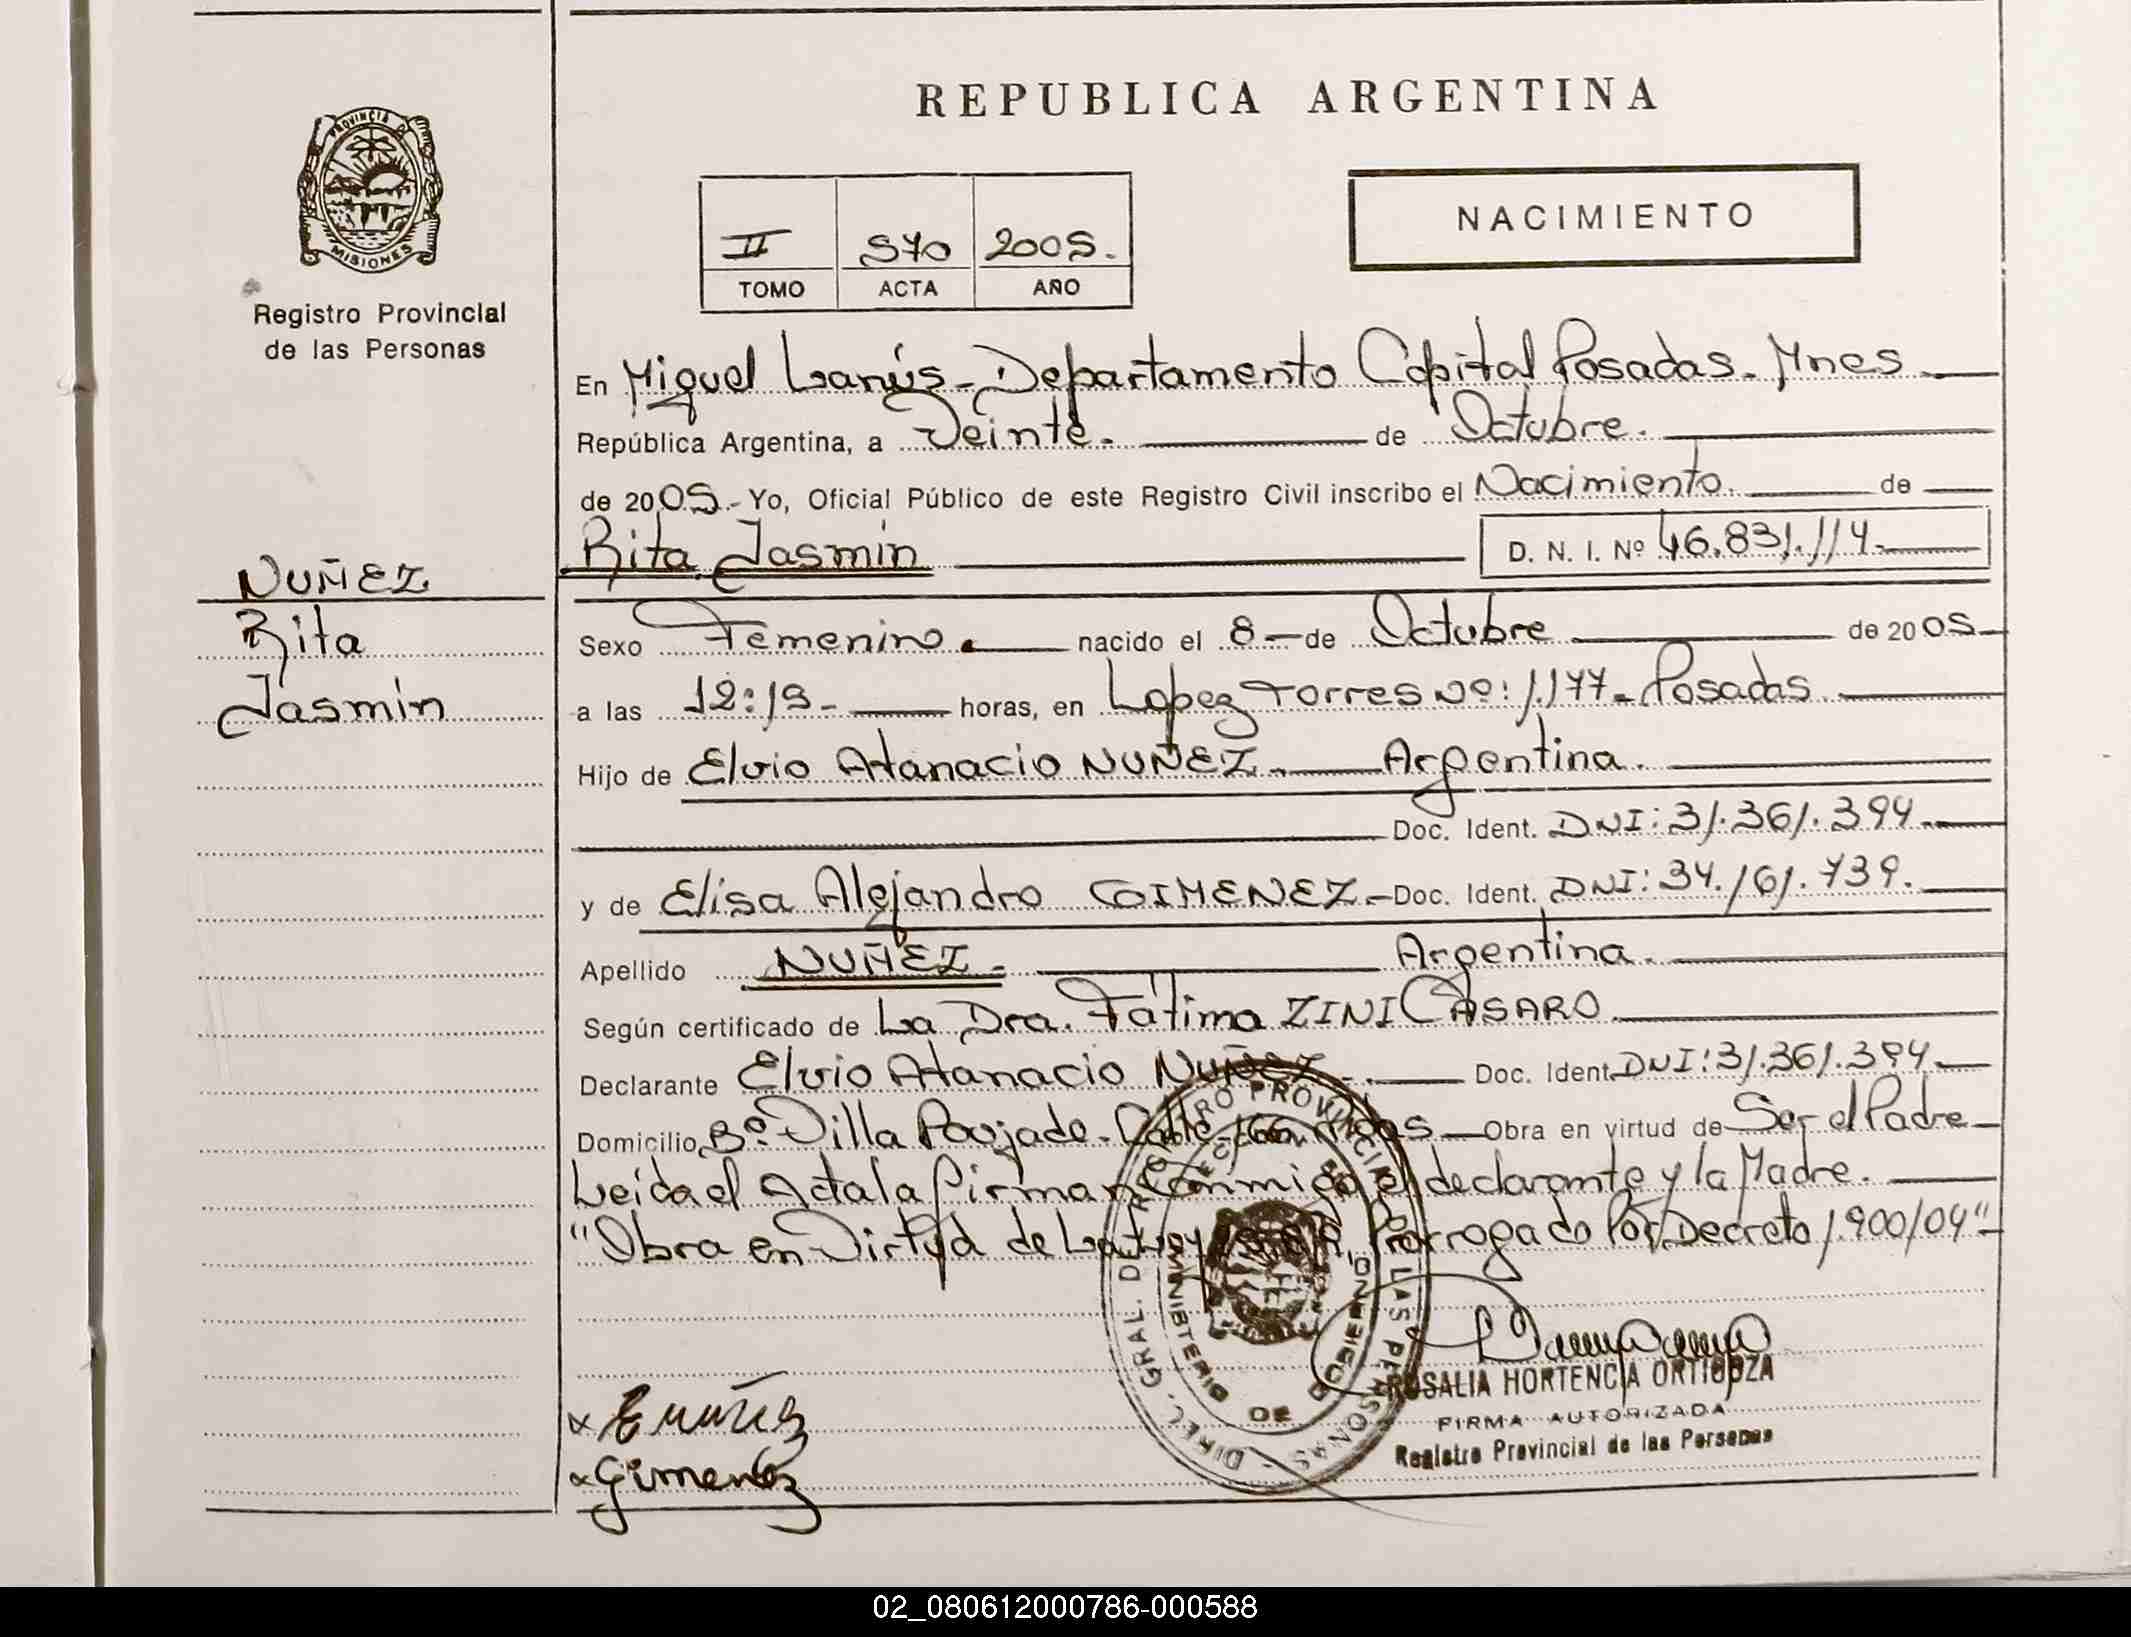 REPUBLICA ARGENTINA
PROVINCIA D
MISIONES
Registro Provincial
de las Personas
II 570 2005.
TOMO ACTA AÑO
NACIMIENTO
En Miguel Lanús - Departamento Capital Posadas - Mnes
República Argentina, a Veinte. de Octubre.
de 2005.- Yo, Oficial Público de este Registro Civil inscribo el Nacimiento de
Rita Jasmin D. N. I. Nº 46.831.114.
NUÑEZ
Rita
Jasmin
Sexo Femenino. nacido el 8 - de Octubre de 2005
a las 12:15 - horas, en Lopez Torres Nº: 1.177 - Posadas
Hijo de Elvio Atanacio NUÑEZ. Argentina.
Doc. Ident. DNI: 31.361.394.
y de Elisa Alejandro GIMENEZ - Doc. Ident. DNI: 34.161.739.
Apellido NUÑEZ. Argentina.
Según certificado de La Dra. Fátima ZINI CASARO
Declarante Elvio Atanacio NUÑEZ. Doc. Ident. DNI: 31.361.394.
Domicilio Bº. Villa Poujade - Calle Obra en virtud de Ser el Padre
Leida el Acta la firman conmigo el declarante y la Madre.
"Obra en Virtud de La Ley Prorrogado Por Decreto 1.900/04"
DIREC. GRAL. DEL REGISTRO PROVINCIAL DE LAS PERSONAS
MINISTERIO DE GOBIERNO
ROSALIA HORTENCIA ORTIGOZA
FIRMA AUTORIZADA
Registro Provincial de las Personas
x E Nuñez
x Gimenez
02_080612000786-000588